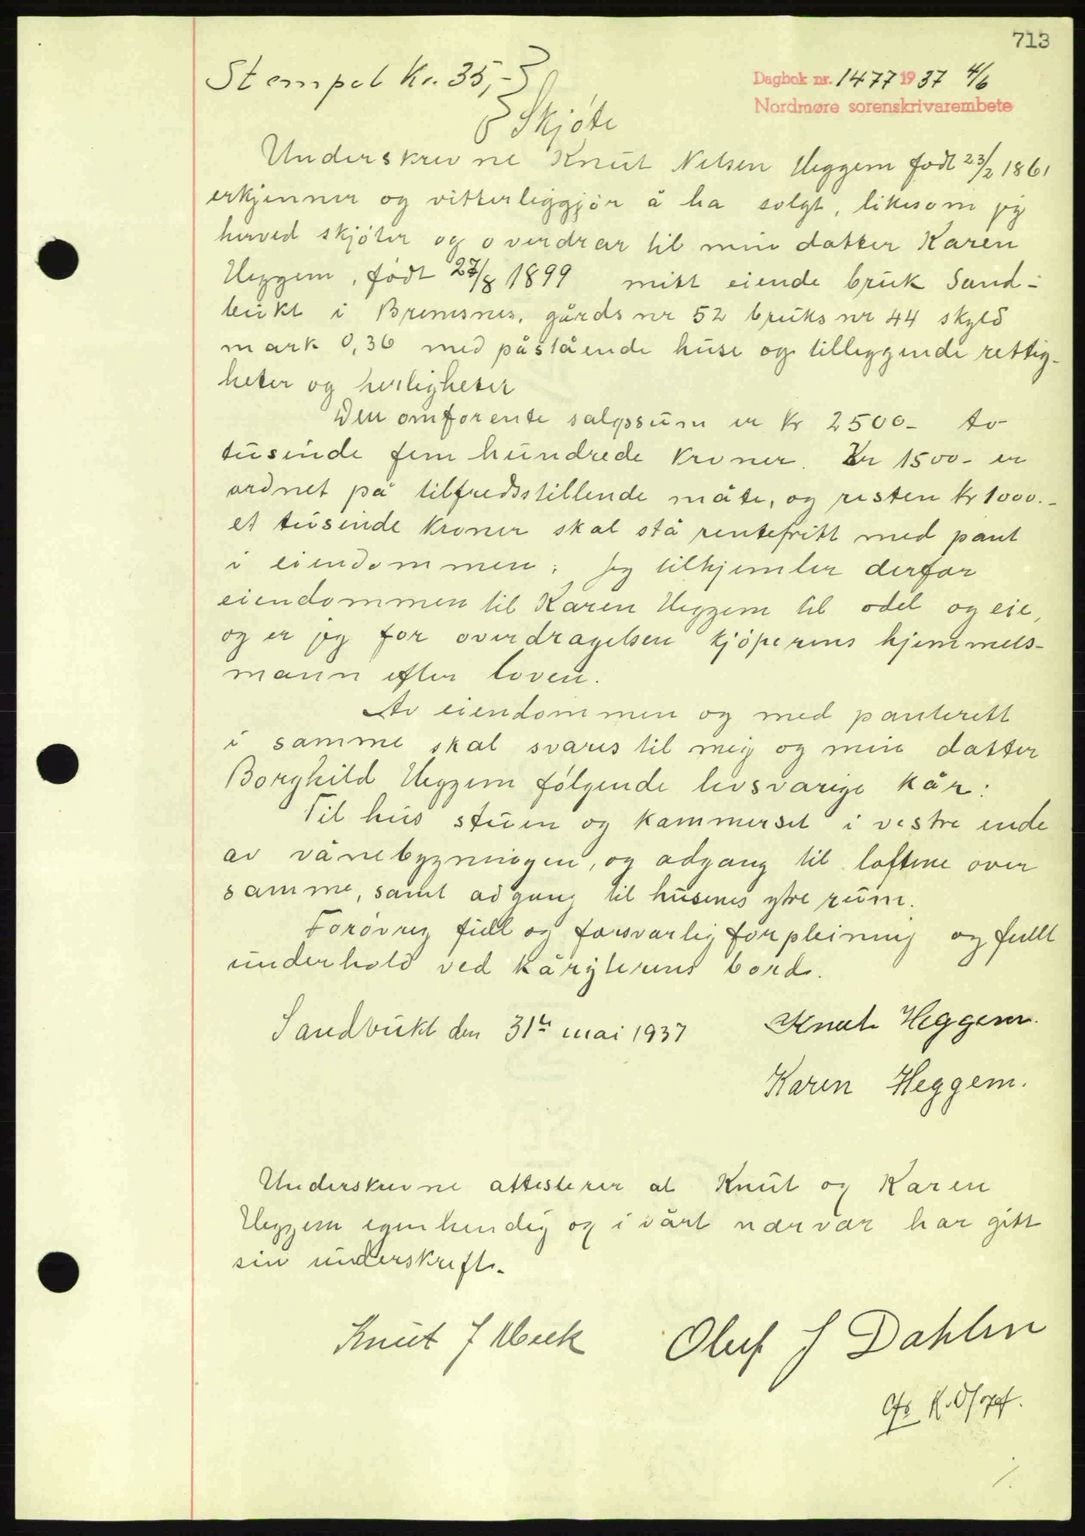 713
Stempel Kr. 35,-
Dagbok nr. 1477 1937 4/6
Nordmøre sorenskrivarembete
Skjöte
Underskrevne Knut Nelsen Heggem født 23/2 1861
erkjenner og vitterliggjör å ha solgt, likesom jeg
herved skjöter og overdrar til min datter Karen
Heggem, födt 27/8 1899 mitt eiende bruk Sand-
bukt i Bremsnes, gårds nr 52 bruks nr 44 skyld
mark 0,36 med påstående huse og tilleggende rettig-
heter og herligheter
Den omforente salgssum er Kr 2500- to
tusinde fem hundrede Kroner. Kr 1500- er
ordnet på tilfredsstillende måte, og resten Kr 1000.-
et tusinde Kroner skal stå rentefritt med pant
i eiendommen. Jeg tilhjemler derfor
eiendommen til Karen Heggem til odel og eie,
og er jeg for overdragelsen kjöperens hjemmels-
mann efter loven.
Av eiendommen og med panterett
i samme skal svares til meg og min datter
Borghild Heggem fölgende livsvarige kår:
Til hus stuen og kammerset i vestre ende
av vånebygningen, og adgang til loftene over
samme, samt adgang til husenes ytre rum.
Forövrig full og forsvarlig forpleining og fullt
underhold ved kåryterens bord.
Sandbukt den 31te mai 1937
Knut Heggem.
Karen Heggem.
Underskrevne attesterer at Knut og Karen
Heggem egenhendig og i vårt nærvær har gitt
sin underskrift.
Knut J
Oluf J Dahlen